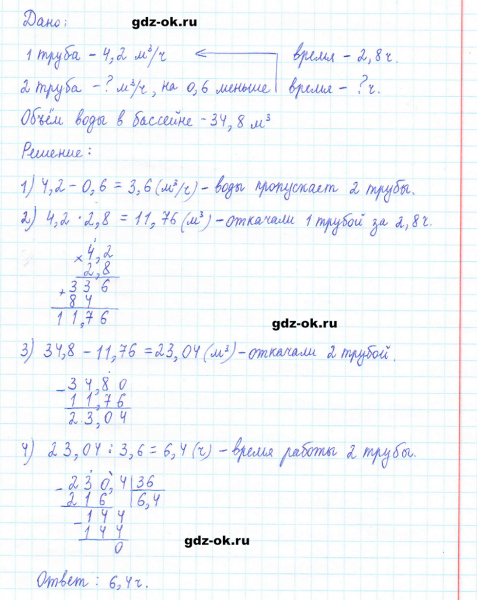 Дано:
gdz-ok.ru
1 труба – 4,2 м³/ч время – 2,8 ч.
2 труба – ? м³/ч, на 0,6 меньше время – ? ч.
Объём воды в бассейне – 34,8 м³
Решение:
1) 4,2 – 0,6 = 3,6 (м³/ч) – воды пропускает 2 трубы.
2) 4,2 · 2,8 = 11,76 (м³) – откачали 1 трубой за 2,8 ч.
× 4,2
2,8
+ 336
84
11,76
gdz-ok.ru
3) 34,8 – 11,76 = 23,04 (м³) – откачали 2 трубой.
– 34,80
11,76
23,04
4) 23,04 : 3,6 = 6,4 (ч) – время работы 2 трубы.
– 230,4 | 36
216 | 6,4
– 144
144
0
gdz-ok.ru
Ответ: 6,4 ч.